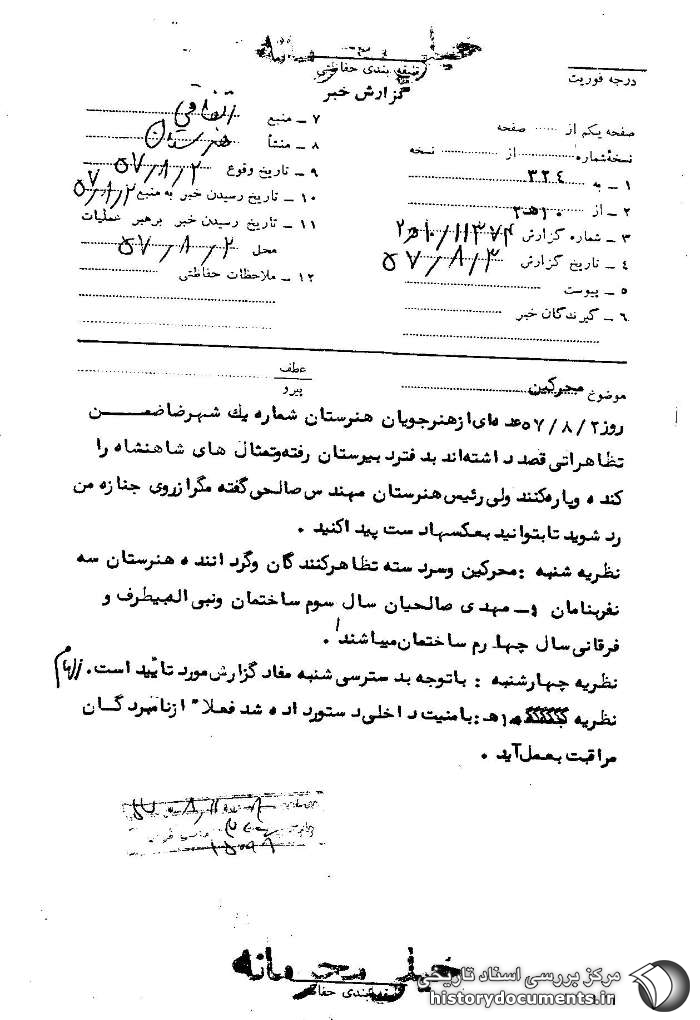 خیلی محرمانه
طبقه بندی حفاظتی
درجه فوریت
گزارش خبر
صفحه یکم از ...... صفحه
نسخهٔ شماره ............ از ........ نسخه
۱ ـ به ۳۲۴
۲ ـ از ۱۰هـ۲
۳ ـ شماره گزارش ۱۱۳۷۴/۱۰هـ۲
۴ ـ تاریخ گزارش ۵۷/۸/۳
۵ ـ پیوست
۶ ـ گیرندگان خبر
۷ ـ منبع اتفاقی
۸ ـ منشأ هنرستان
۹ ـ تاریخ وقوع ۵۷/۸/۲
۱۰ ـ تاریخ رسیدن خبر به منبع ۵۷/۸/۲
۱۱ ـ تاریخ رسیدن خبر برهبر عملیات
محل ۵۷/۸/۲
۱۲ ـ ملاحظات حفاظتی
موضوع محرکین
عطف
پیرو
روز ۵۷/۸/۲ عده ای از هنرجویان هنرستان شماره یك شهرضا ضمن
تظاهراتی قصد داشته‌اند بدفتر دبیرستان رفته و تمثال های شاهنشاه را
کنده و پاره کنند ولی رئیس هنرستان مهندس صالحی گفته مگر از روی جنازه من
رد شوید تا بتوانید بعکسها دست پیدا کنید .
نظریه شنبه : محرکین و سردسته تظاهرکنندگان و گرداننده هنرستان سه
نفر بنامان مهدی صالحیان سال سوم ساختمان و نبی اله بیطرف و
فرقانی سال چهارم ساختمان میباشند .
نظریه چهارشنبه : با توجه بدسترسی شنبه مفاد گزارش مورد تأیید است.
نظریه ۱۰هـ : بامنیت داخلی دستور داده شد فعلاً از نامبردگان
مراقبت بعمل آید .
خیلی محرمانه
طبقه بندی حفاظتی
مرکز بررسی اسناد تاریخی
historydocuments.ir